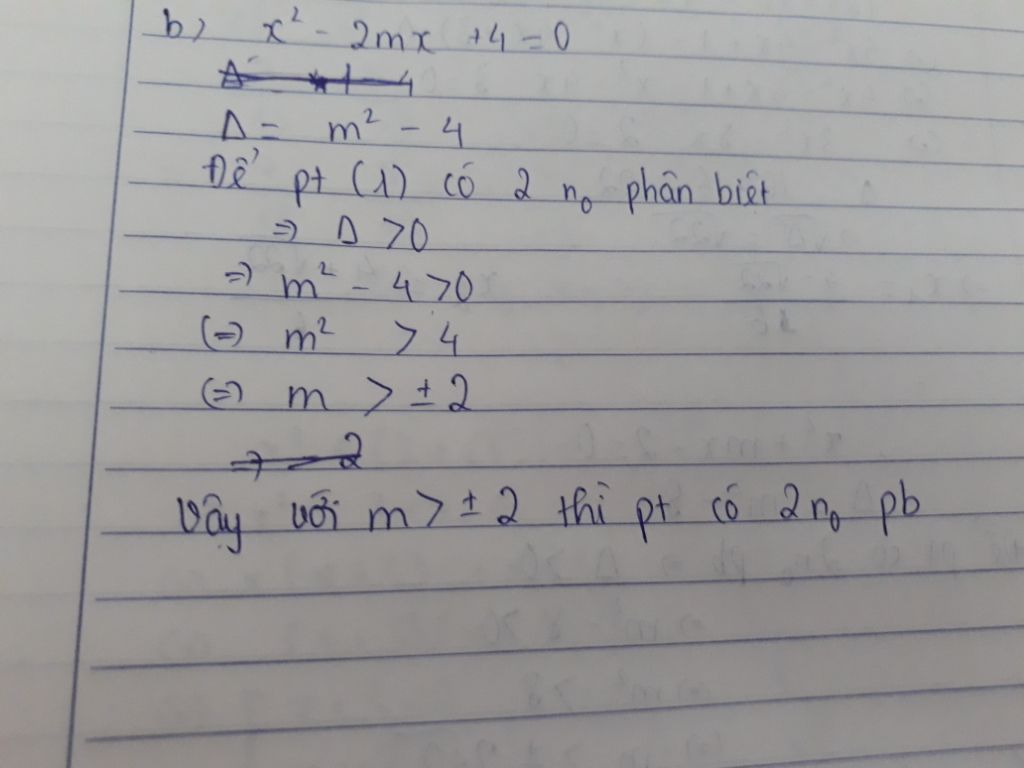 b) x² - 2mx + 4 = 0
Δ = m² - 4
Để pt (1) có 2 n₀ phân biệt
=> Δ > 0
=> m² - 4 > 0
(=) m² > 4
(=) m > ± 2
=> - 2
Vậy với m > ± 2 thì pt có 2 n₀ pb